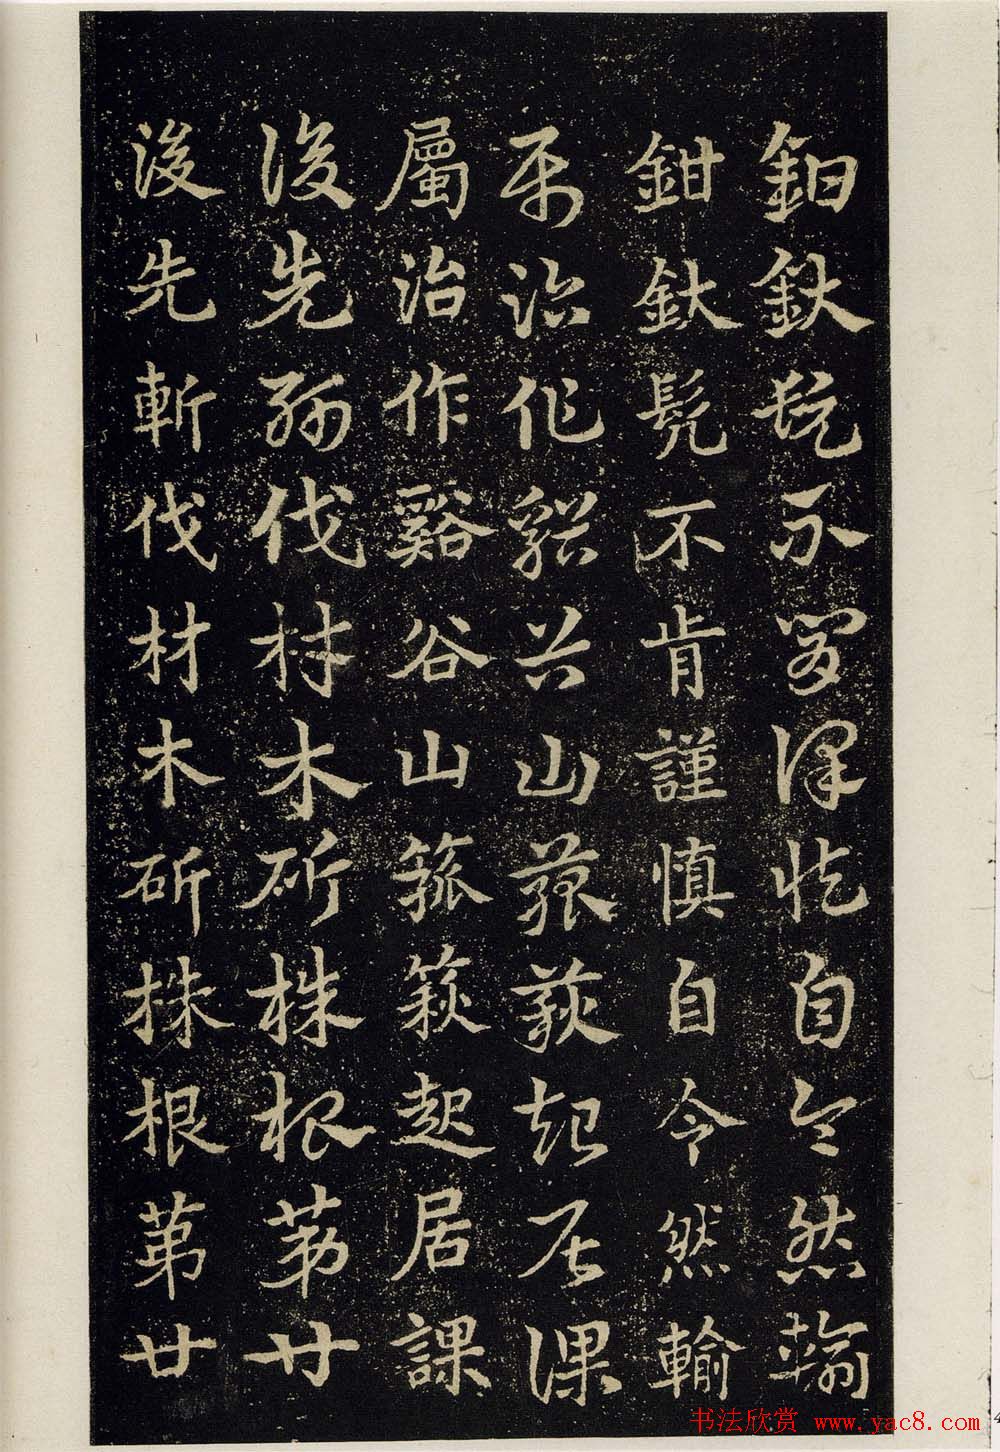 鉗釱髡不肯謹慎自令然輸
鉗釱髡不肯謹慎自令然輸
屬治作谿谷山箛篍起居課
屬治作谿谷山箛篍起居課
後先斬伐材木斫株根第廿
後先斬伐材木斫株根第廿
书法欣赏 www.yac8.com